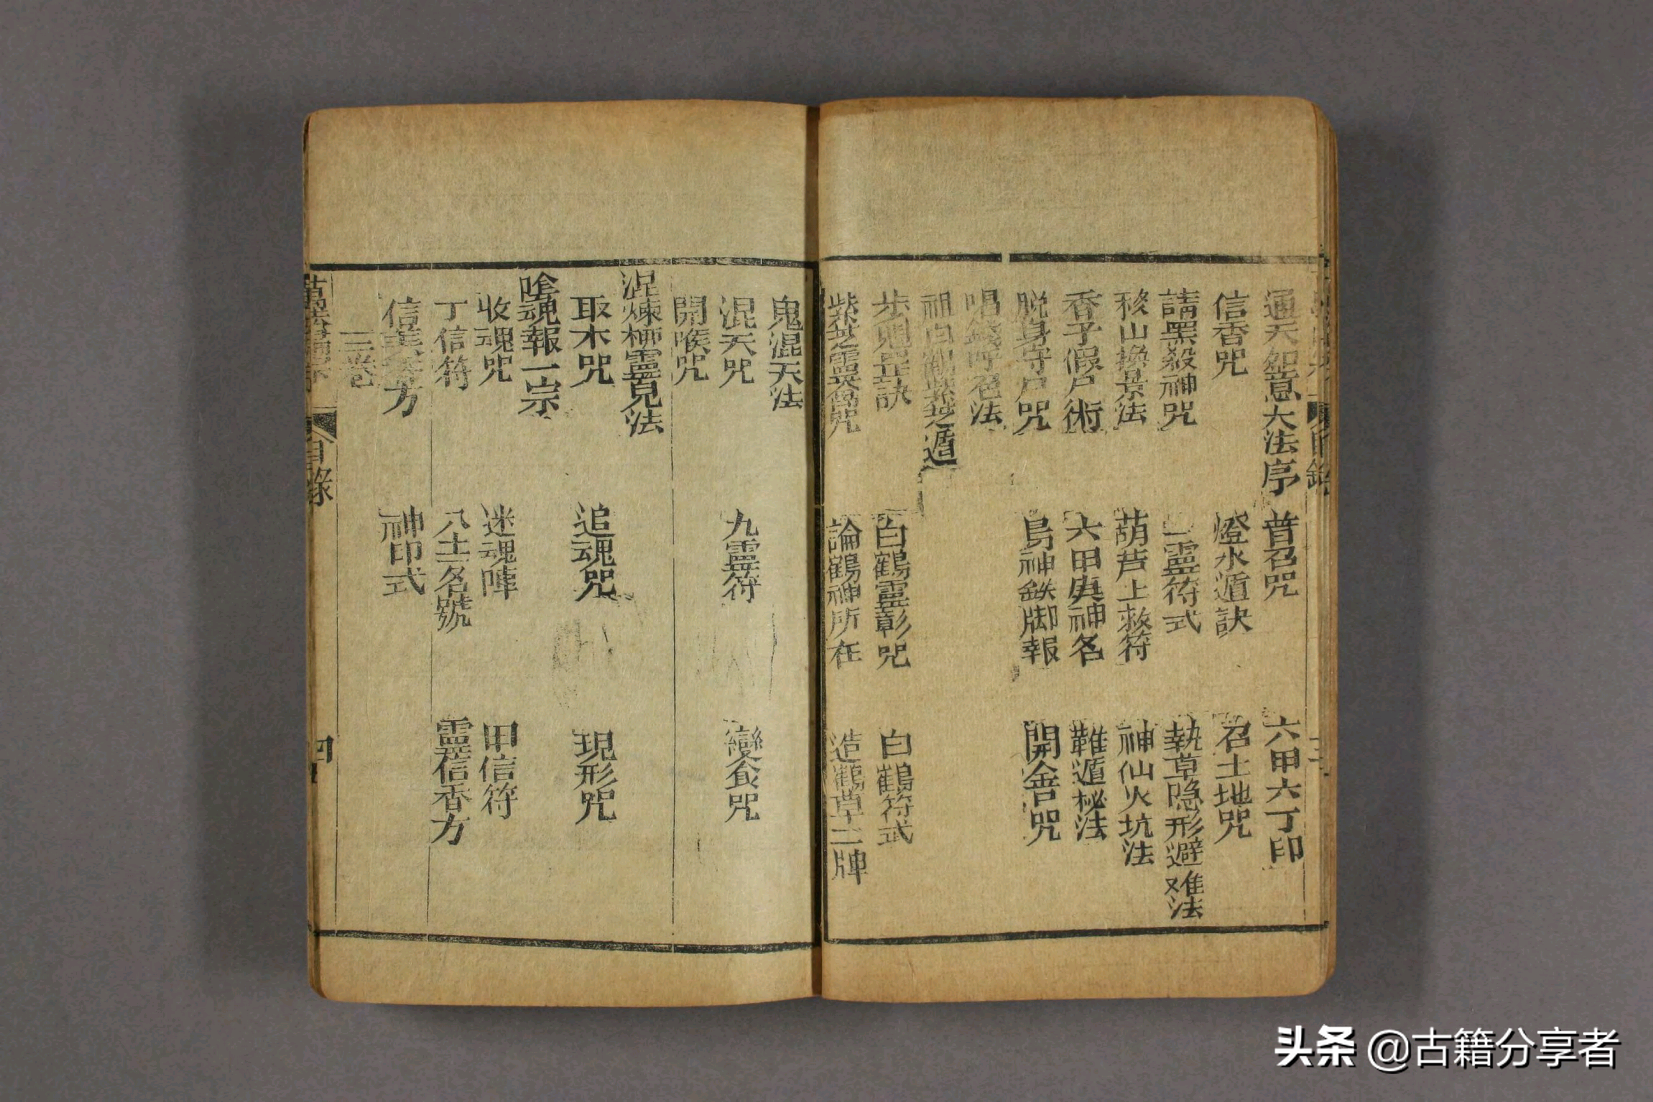 通天怨意大法序 普召咒 六甲六丁印
信香咒 燈水遁訣 召土地咒
請黑殺神咒 一靈符式 執草隐形避难法
移山換景法 葫芦上救符 神仙火坑法
香子假户術 六甲庚神名 難遁秘法
脱身守尸咒 烏神鉄脚報 開倉咒
唱錢呼色法
祖白鶴紫芝遁
步罡訣 白鶴靈彰咒 白鶴符式
紫芝靈舍咒 論鶴神所在 造鶴草二牌
鬼混天法
混天咒 九靈符 變食咒
開喉咒
混煉柳靈見法
取木咒 追魂咒 現形咒
嗆魂報一宗
收魂咒 迷魂陣 甲信符
丁信符 八士名號 靈信香方
信香方 神印式
三卷
目錄 四
头条 @古籍分享者